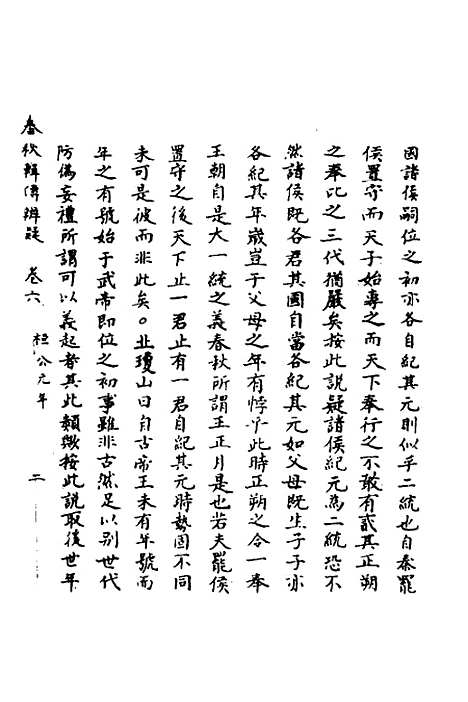 國諸侯嗣位之初亦各自紀其元則似乎二統也自秦罷
侯置守而天子始專之而天下奉行之不敢有貳其正朔
之奉比之三代猶嚴矣按此說疑諸侯紀元為二統恐不
然諸侯既各君其國自當各紀其元如父母既生子子亦
各紀其年歲豈于父母之年有悖乎此時正朔之合一奉
王朝自是大一統之義春秋所謂王正月是也若夫罷侯
置守之後天下止一君止有一君自紀其元時勢固不同
未可是彼而非此矣。丘瓊山曰自古帝王未有年號而
年之有號始于武帝即位之初事雖非古然足以別世代
防偽妄禮所謂可以義起者其此類歟按此說取後世年
春秋辯傳辨疑 卷六 桓公元年 二